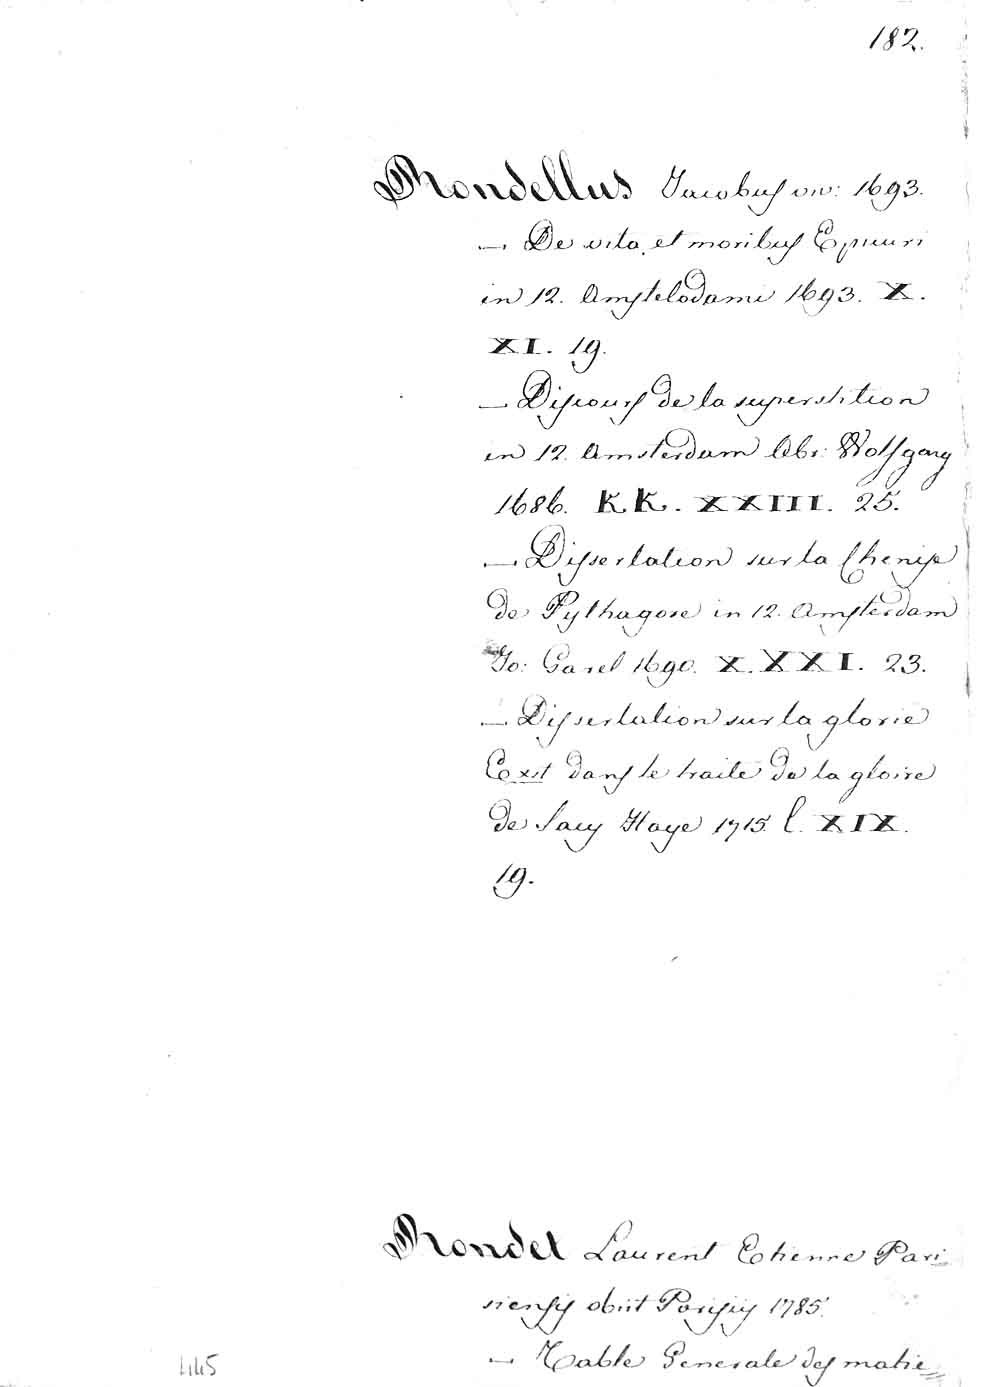 182.
Rondellus Jacobus viv: 1693.
— De vita et moribus Epicuri
in 12. Amstelodami 1693. X.
XI. 19.
— Discours de la superstition
in 12. Amsterdam Abr: Wolfgang
1686. KK. XXIII. 25.
— Dissertation sur la Chenise
de Pythagore in 12. Amsterdam
Jo: Garel 1690. X. XXI. 23.
— Dissertation sur la glorie
Exit dans le traite de la gloire
de Sacy Haye 1715. l. XIX.
19.
Rondet Laurent Etienne Pari=
siensis obiit Parisiis 1785.
— Table Generale des matie=
445